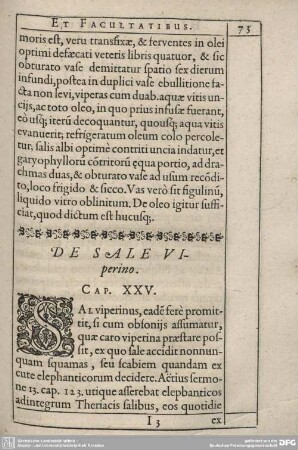 ET FACULTATIBUS. 73
moris est, veru transfixæ, & ferventes in olei
optimi defæcati veteris libris quatuor, & sic
obturato vase demittatur spatio sex dierum
infundi, postea in duplici vase ebullitione fa-
cta non levi, viperas cum duab. aquæ vitis un-
cijs, ac toto oleo, in quo prius infusæ fuerant,
eò usq; iterũ decoquantur, quousq; aqua vitis
evanuerit; refrigeratum oleum colo percole-
tur, salis albi optimè contriti uncia indatur, et
garyophyllorũ cõtritorũ ęqua portio, ad dra-
chmas duas, & obturato vase ad usum recõdi-
to, loco frigido & sicco. Vas verò sit figulinũ,
liquido vitro oblinitum. De oleo igitur suffi-
ciat, quod dictum est hucusq;.
DE SALE VI-
perino.
CAP. XXV.
SAL viperinus, eadẽ ferè promit-
tit, si cum obsonijs assumatur,
quæ caro viperina præstare pos-
sit, ex quo sale accidit nonnun-
quam squamas, seu scabiem quandam ex
cute elephanticorum decidere. Aëtius sermo-
ne 13. cap. 123. utique asserebat elephanticos
ad integrum Theriacis salibus, eos quotidie
I 3 ex